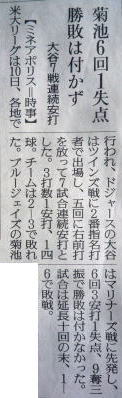 菊池6回1失点
勝敗は付かず
大谷7戦連続安打
【ミネアポリス＝時事】
米大リーグは10日、各地で
行われ、ドジャースの大谷
はツインズ戦に2番指名打
者で出場し、五回に右前打
を放って7試合連続安打と
した。3打数1安打、1四
球。チームは2―3で敗れ
た。ブルージェイズの菊池
はマリナーズ戦に先発し、
6回3安打1失点、9奪三
振で勝敗は付かなかった。
試合は延長十回の末、1―
6で敗戦。